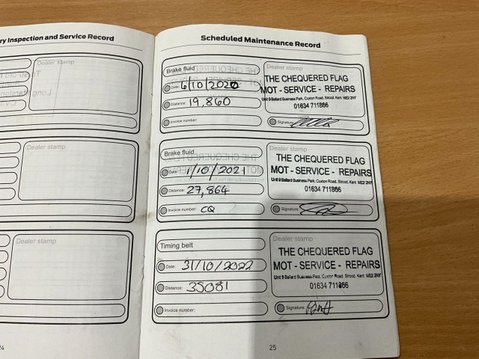 ry Inspection and Service Record
Dealer stamp
Dealer stamp
Dealer stamp
24
Scheduled Maintenance Record
Brake fluid
Date: 6/10/2020
Distance: 19,860
Invoice number:
Dealer stamp
THE CHEQUERED FLAG
MOT - SERVICE - REPAIRS
Unit 9 Ballard Business Park, Cuxton Road, Strood, Kent. ME2 2NY
01634 711866
Signature:
Brake fluid
Date: 1/10/2021
Distance: 27,864
Invoice number: CQ
Dealer stamp
THE CHEQUERED FLAG
MOT - SERVICE - REPAIRS
Unit 9 Ballard Business Park, Cuxton Road, Strood, Kent. ME2 2NY
01634 711866
Signature:
Timing belt
Date: 31/10/2022
Distance: 35081
Invoice number:
Dealer stamp
THE CHEQUERED FLAG
MOT - SERVICE - REPAIRS
Unit 9 Ballard Business Park, Cuxton Road, Strood, Kent. ME2 2NY
01634 711866
Signature:
25